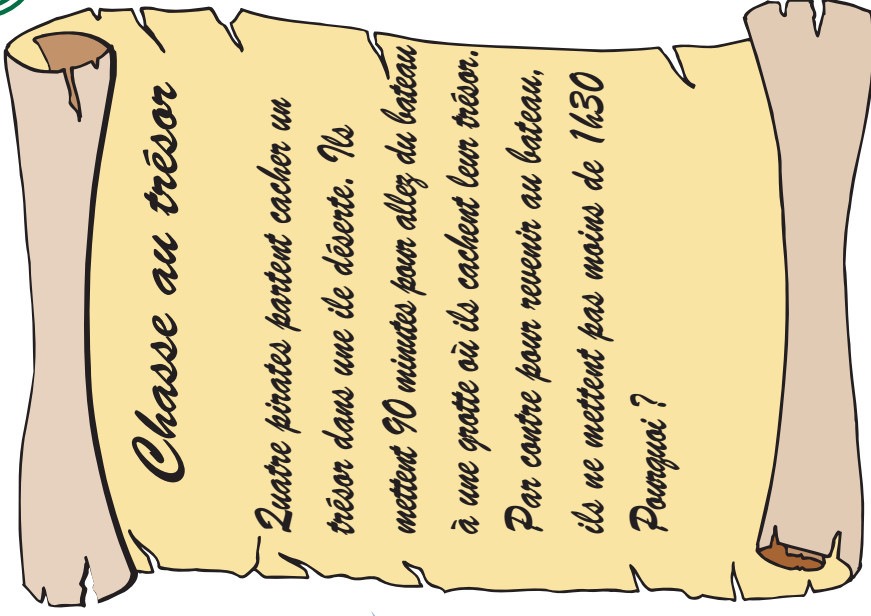 Chasse au trésor
Quatre pirates partent cacher un
trésor dans une ile déserte. Ils
mettent 90 minutes pour allez du bateau
à une grotte où ils cachent leur trésor.
Par contre pour revenir au bateau,
ils ne mettent pas moins de 1h30
Pourquoi ?